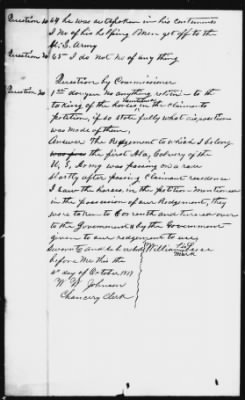 Question No 64 he was outspoken in his sentiments
I no of his helping Men get off to the
U. S. Army
Question No 65 I do not no of any thing
Question by Commissioner
Question No 1st do you no anything relative to the
taking of the horses, mentioned in the claimants
petition, if so state fully what disposition
was made of them,
Answer The Regement to which I belong
was pass the first Ala, Calvery of the
U. S, Army was passing on a raid
shortly after passing Claimant residence
I saw the horses in the petition mentioned
in the possession of our Regement, they
were taken to Corinth and turned over
to the Government & by the Government
given to our regement to use,
Sworn to and sub William his
before Me this the mark
6th day of October 1877
W. W. Johnson
Chancery Clerk